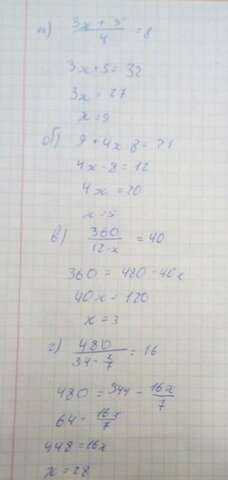 а) (3x + 5)/4 = 8
3x+5= 32
3x = 27
x = 9
б) 9 + 4x 8 = 21
4x - 8 = 12
4x = 20
x = 5
в) 360/(12-x) = 40
360 = 480 - 40x
40x = 120
x = 3
г) 480/(34 - x/7) = 16
480 = 544 - 16x/7
64 = 16x/7
448 = 16x
x = 28